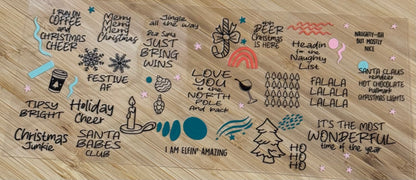 I RUN ON
COFFEE
and
CHRISTMAS
CHEER
Merry
Merry
Merry
Christmas
Jingle
all the way
JUST
BRING
WINS
BEER
Christmas
IS HERE
Headin'
for the
Naughty
List
NAUGHTY-ISH
BUT MOSTLY
NICE
FESTIVE
AF
LOVE
YOU
to the
NORTH
POLE
and back
FALALA
LALALA
LALALA
SANTA CLAUS
reindeer
HOT CHOCOLATE
hallmark
CHRISTMAS LIGHTS
TIPSY
BRIGHT
Holiday
Cheer
Christmas
Junkie
SANTA
BABES
CLUB
I AM ELFIN' AMAZING
HO
HO
HO
IT'S THE MOST
WONDERFUL
time of the year